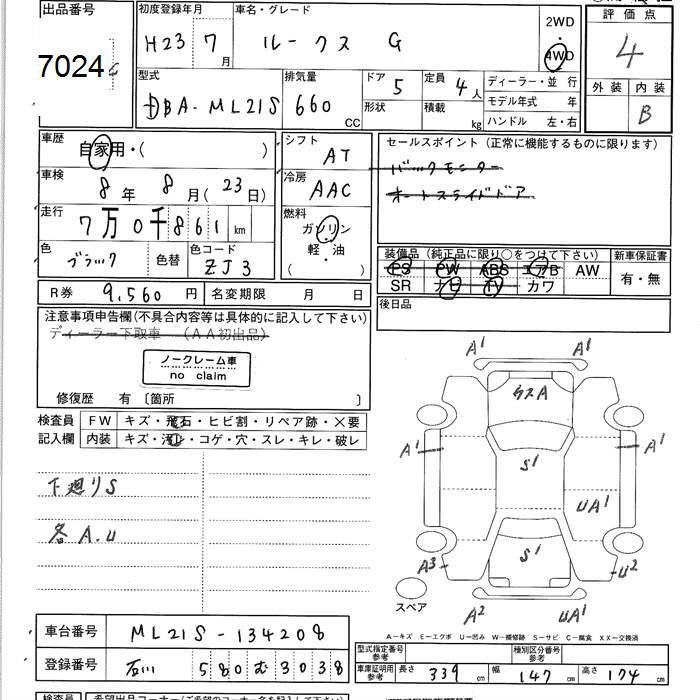 出品番号
初度登録年月
車名・グレード
2WD
評価点
7024
H23年 7月
ルークス G
4WD
4
型式
排気量
ドア 5
定員 4人
ディーラー・並行
外装 内装
DBA-ML21S
660 CC
形状
積載 kg
モデル年式 年
B
ハンドル 左・右
車歴
自家用・( )
シフト
AT
セールスポイント(正常に機能するものに限ります)
バックモニター
車検
8年 8月(23日)
冷房
AAC
オートスライドドア
走行
7万0千861km
燃料
ガソリン
軽・油
( )
色
ブラック
色替
色コード
ZJ3
装備品(純正品に限り○をつけて下さい)
新車保証書
PS PW ABS エアB AW
有・無
SR ナビ TV カワ
R券 9,560円
名変期限 月 日
後日品
注意事項申告欄(不具合内容等は具体的に記入して下さい)
ディーラー下取車 (AA初出品)
ノークレーム車
no claim
修復歴 有〔箇所 〕
検査員
記入欄
FW キズ・飛石・ヒビ割・リペア跡・×要
内装 キズ・汚レ・コゲ・穴・スレ・キレ・破レ
下廻りS
各A.U
A1
A1
ウスA
A1
A1
S1
UA1
S1
A3
U2
スペア
A2
UA1
A-キズ E-エクボ U-凹み W-補修跡 S-サビ C-腐食 XX-交換済
車台番号 ML21S-134208
登録番号 石川 580 む 3038
型式指定番号
参考
種別区分番号
参考
車庫証明用
参考
長さ 339cm
幅 147cm
高さ 174cm
検査員
希望出品コーナー(ご希望のコーナー名を記入して下さい)